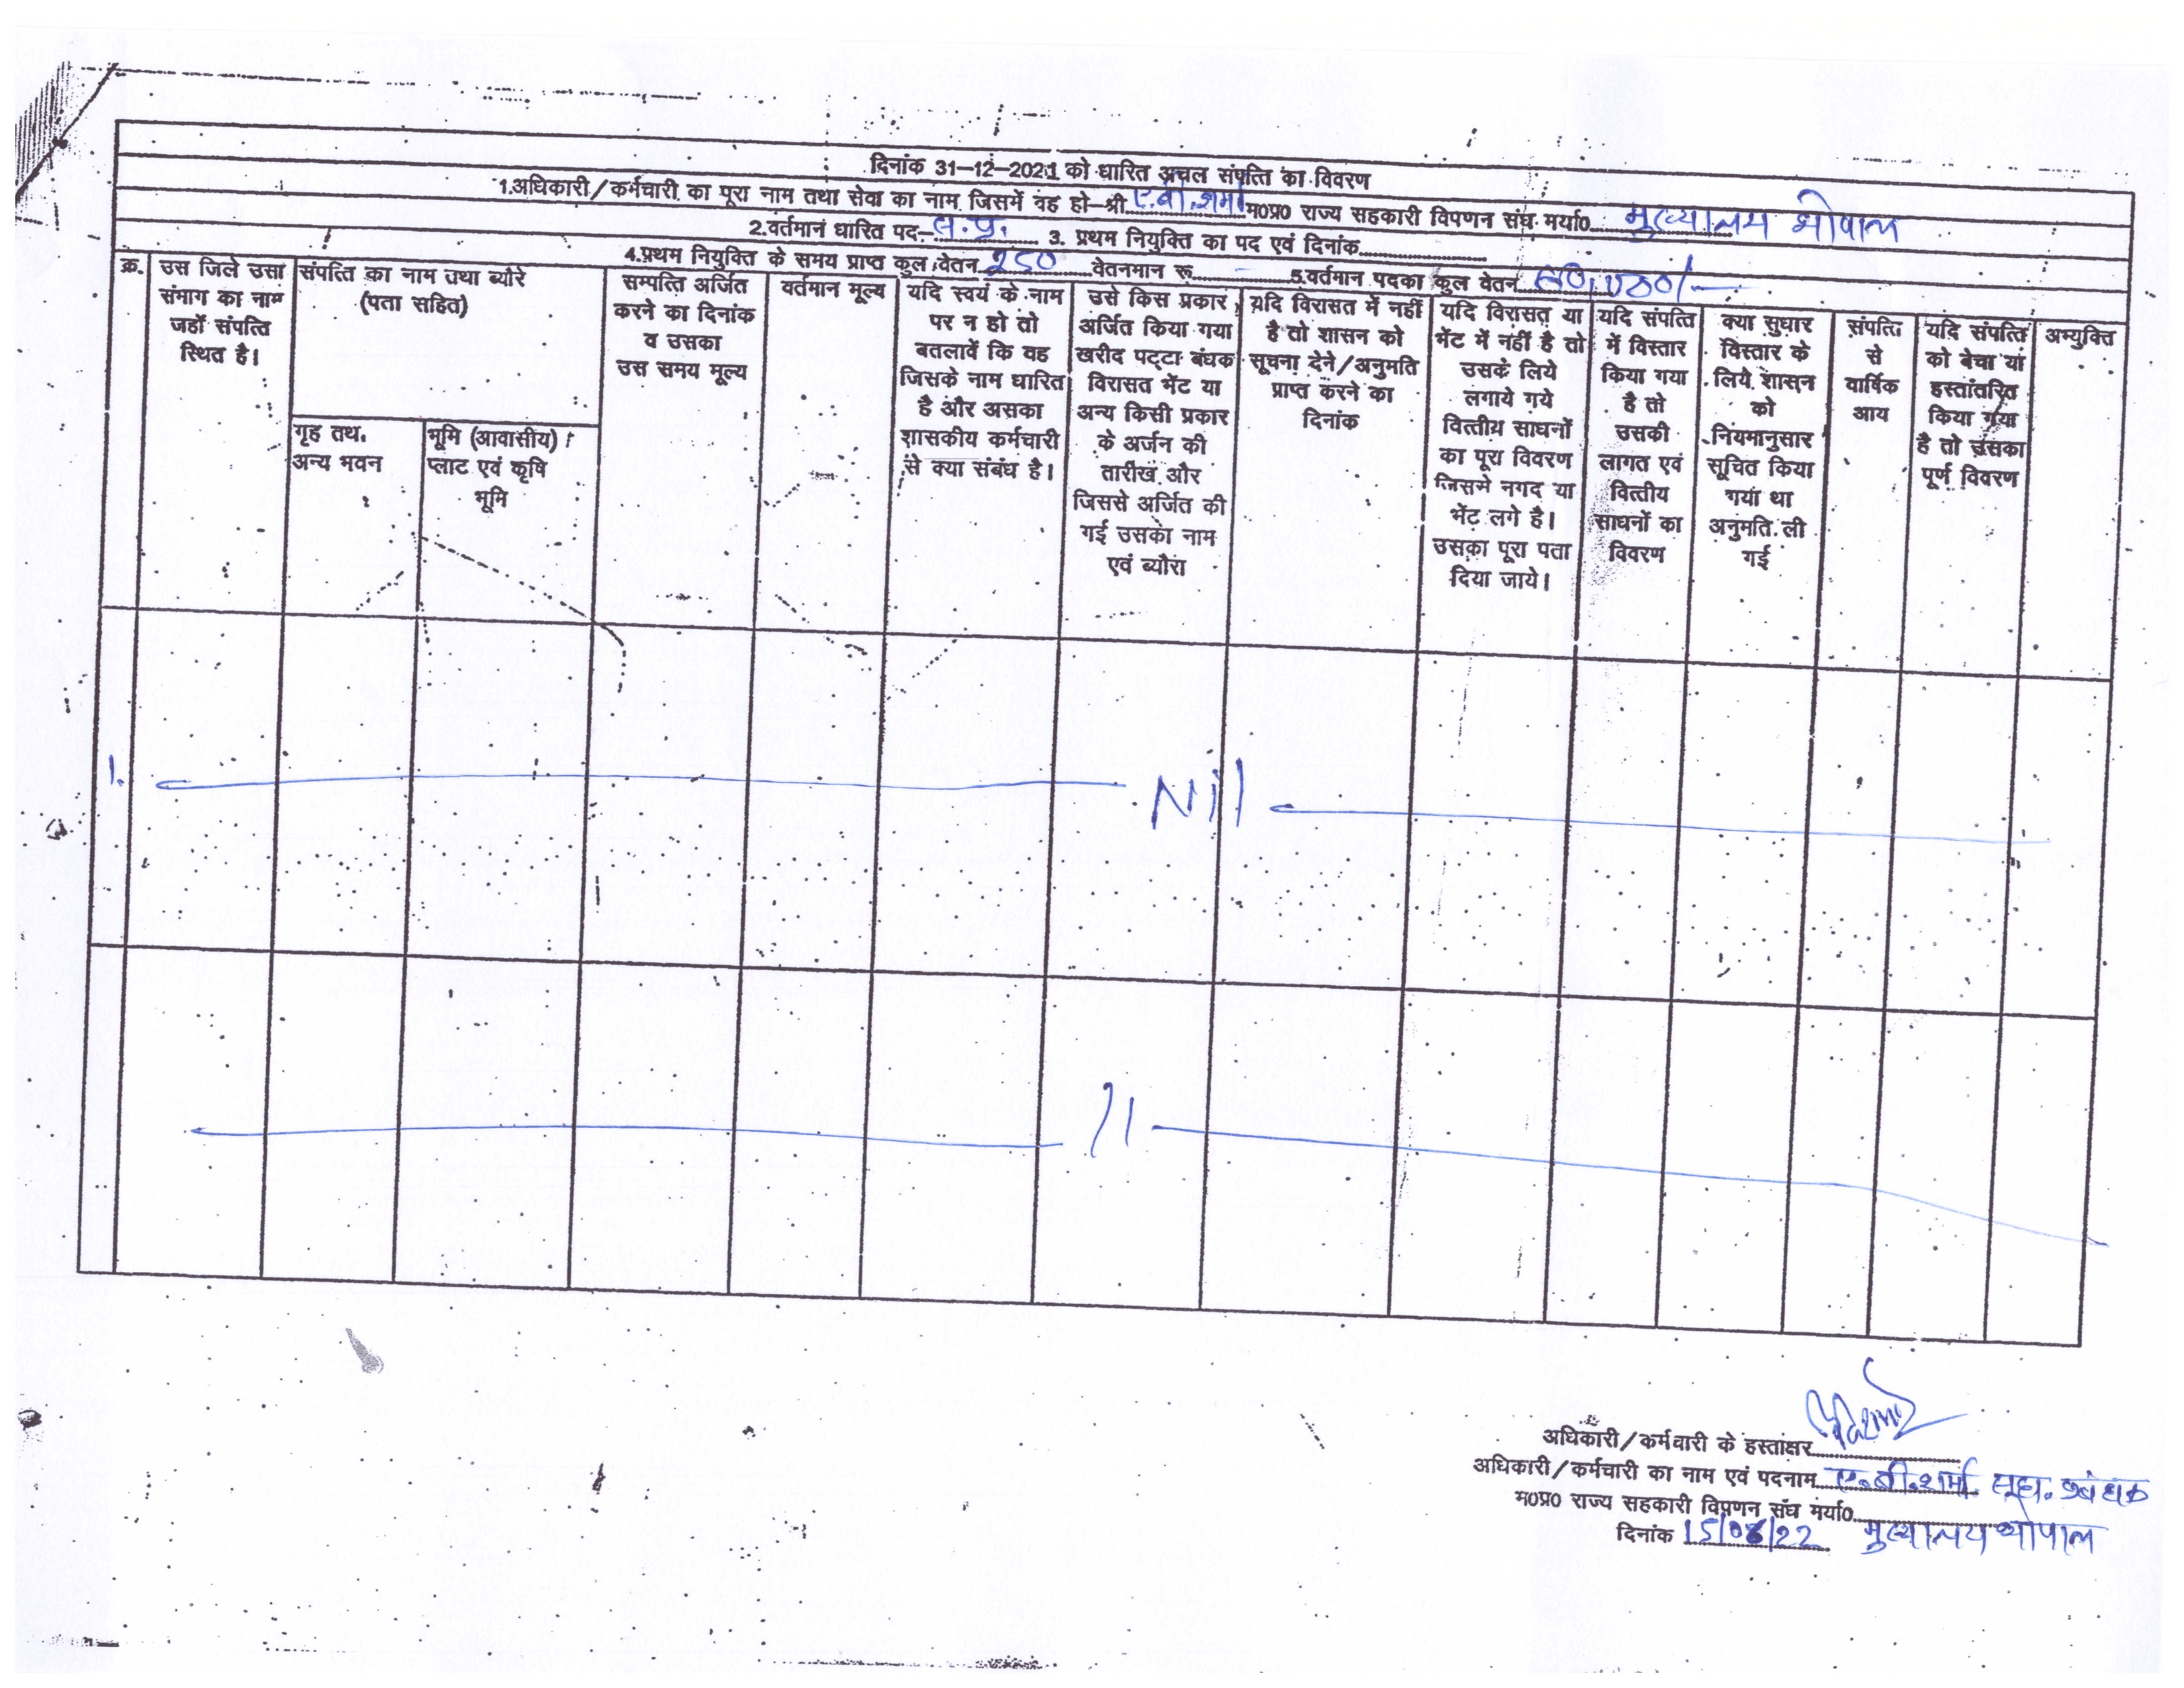 दिनांक 31-12-2021 को धारित अचल संपत्ति का विवरण
1.अधिकारी/कर्मचारी का पूरा नाम तथा सेवा का नाम जिसमें वह हो-श्री ए.बी.शर्मा म०प्र० राज्य सहकारी विपणन संघ मर्या० मुख्यालय भोपाल
2.वर्तमान धारित पद स.प्र. 3. प्रथम नियुक्ति का पद एवं दिनांक
4.प्रथम नियुक्ति के समय प्राप्त कुल वेतन 250 वेतनमान रू. - 5.वर्तमान पदका कुल वेतन
क्र.
उस जिले उसा
संभाग का नाम
जहाँ संपत्ति
स्थित है।
संपत्ति का नाम तथा ब्यौरे
(पता सहित)
गृह तथ.
अन्य भवन
भूमि (आवासीय)
प्लाट एवं कृषि
भूमि
सम्पत्ति अर्जित
करने का दिनांक
व उसका
उस समय मूल्य
वर्तमान मूल्य
यदि स्वयं के नाम
पर न हो तो
बतलावें कि वह
जिसके नाम धारित
है और असका
शासकीय कर्मचारी
से क्या संबंध है।
उसे किस प्रकार
अर्जित किया गया
खरीद पट्टा बंधक
विरासत भेंट या
अन्य किसी प्रकार
के अर्जन की
तारीख और
जिससे अर्जित की
गई उसका नाम
एवं ब्यौरा
यदि विरासत में नहीं
है तो शासन को
सूचना देने/अनुमति
प्राप्त करने का
दिनांक
यदि विरासत या
भेंट में नहीं है तो
उसके लिये
लगाये गये
वित्तीय साधनों
का पूरा विवरण
जिसमे नगद या
भेंट लगे है।
उसका पूरा पता
दिया जाये।
यदि संपत्ति
में विस्तार
किया गया
है तो
उसकी
लागत एवं
वित्तीय
साधनों का
विवरण
क्या सुधार
विस्तार के
लिये शासन
को
नियमानुसार
सूचित किया
गया था
अनुमति ली
गई
संपत्ति
से
वार्षिक
आय
यदि संपत्ति
को बेचा या
हस्तांतरित
किया गया
है तो उसका
पूर्ण विवरण
अभ्युक्ति
1. Nil
11
अधिकारी/कर्मचारी के हस्ताक्षर
अधिकारी/कर्मचारी का नाम एवं पदनाम ए.बी.शर्मा
म०प्र० राज्य सहकारी विपणन संघ मर्या०
दिनांक मुख्यालय भोपाल